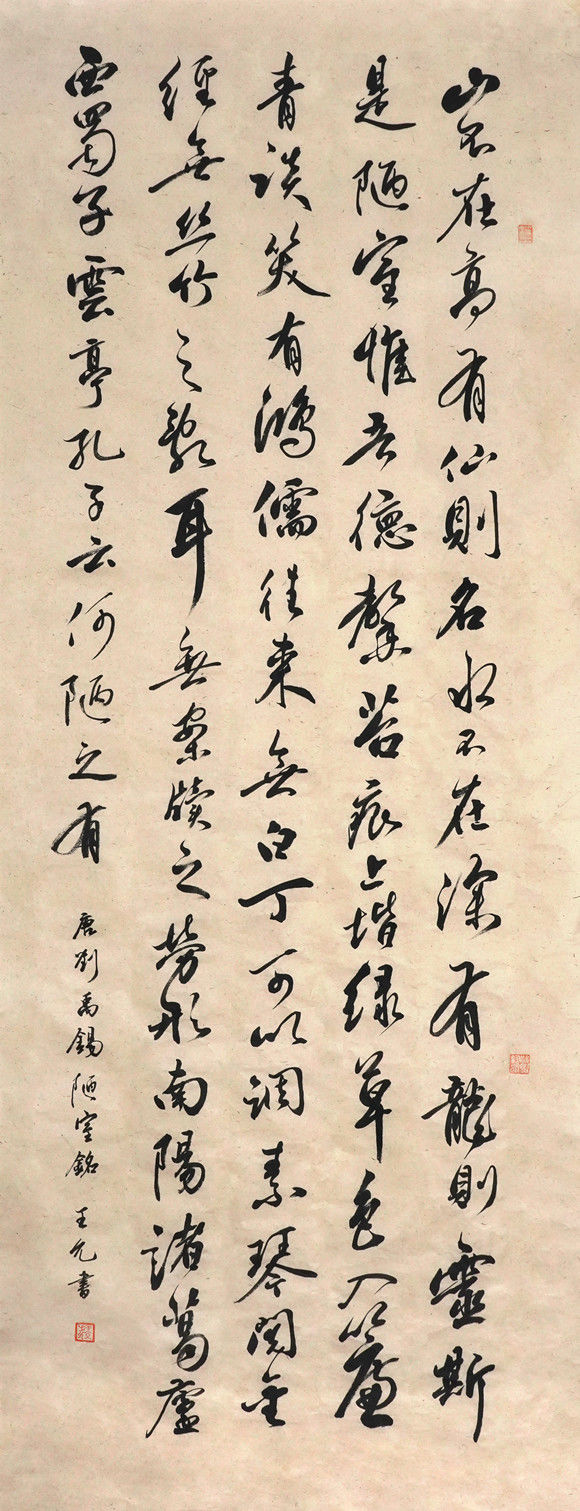 山不在高有仙則名水不在深有龍則靈斯
是陋室惟吾德馨苔痕上堦綠草色入簾
青談笑有鴻儒往來無白丁可以調素琴閱金
經無丝竹之亂耳無案牘之勞形南陽諸葛廬
西蜀子雲亭孔子云何陋之有
唐劉禹錫陋室銘 王允書